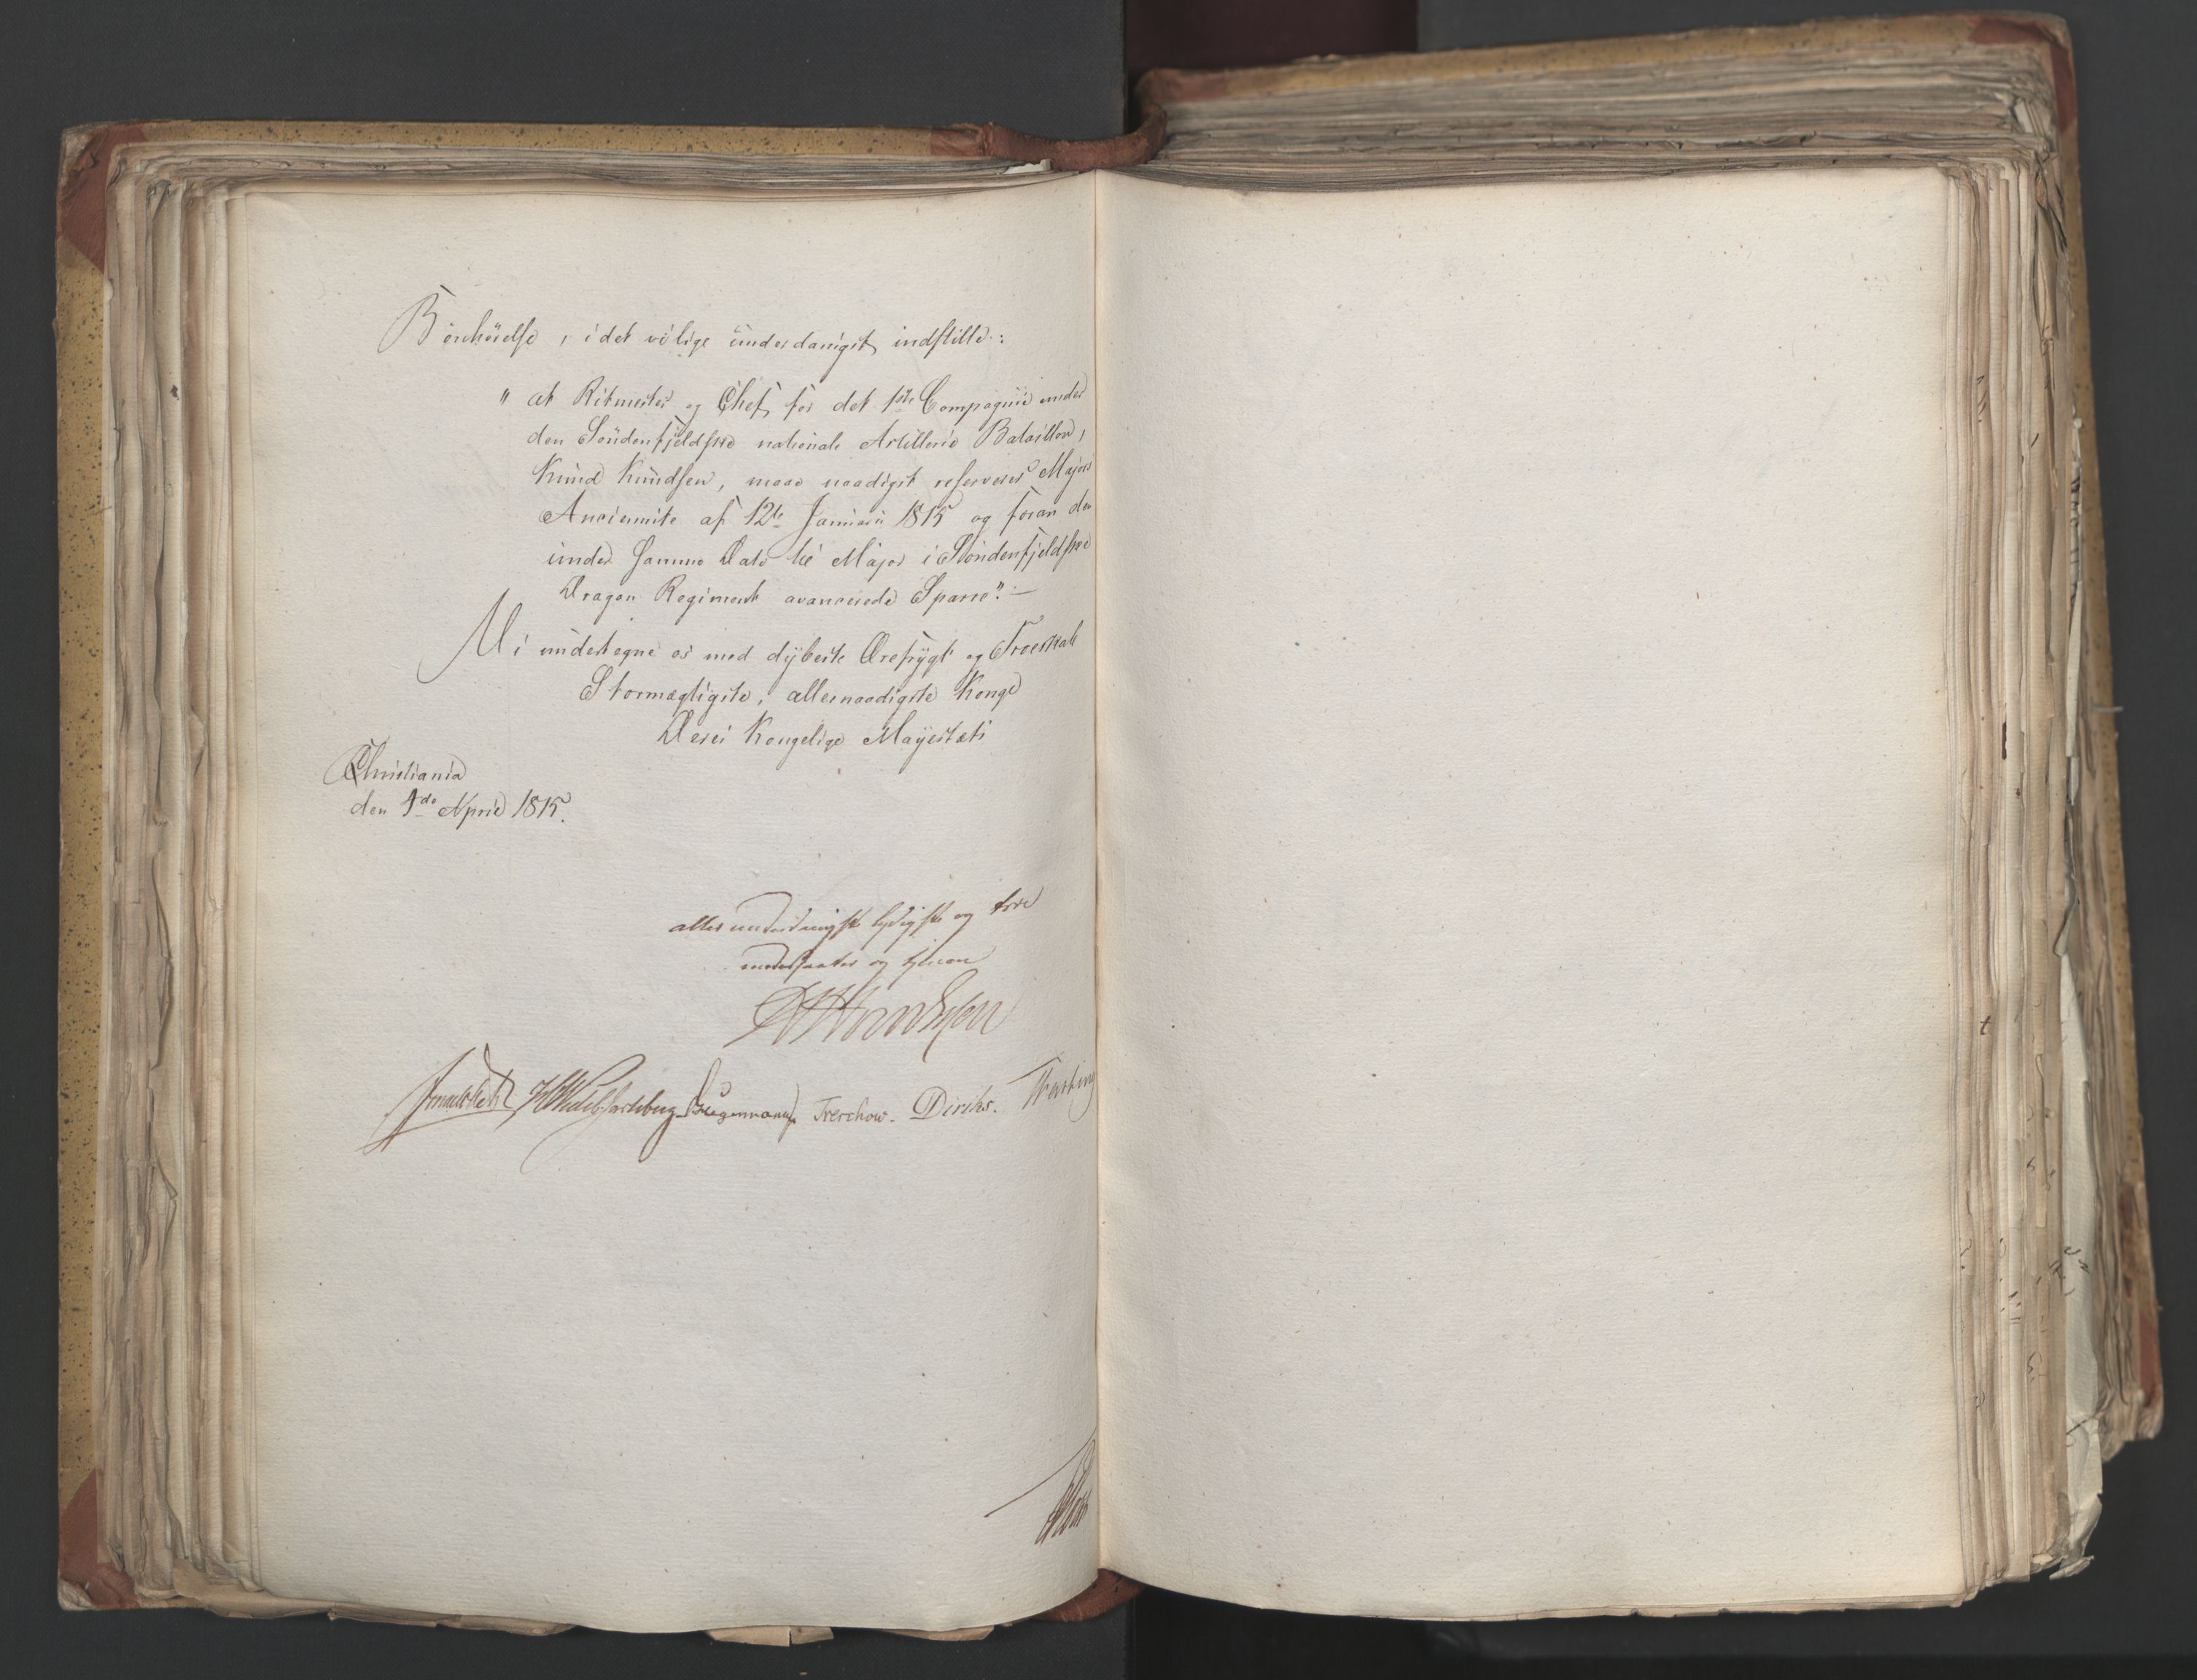 Bönhörelse, idet vi lige underdanigst indstille:
" at Ritmester og Chef for det 1ste Compagnie under
den Söndenfjeldske nationale Artillerie Bataillon,
Knud Knudsen, maae naadigst reserveres Majors
Anciennite af 12te Januarii 1815 og foran den
under samme Dato til Major i Söndenfjeldske
Dragon Regiment avancerede Sparre". —
Vi undertegne os med dybeste Ærefrygt og Troeskab
Stormægtigste, allernaadigste Konge
Deres Kongelige Mayestæts
Christiania
den 1de April 1815.
allerunderdanigste lydigste og troe
undersaatter og tjenere
Treschow. Diriks.